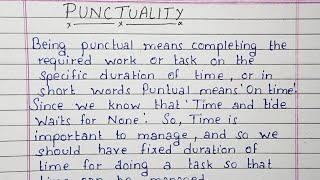 PUNCTUALITY
Being punctual means completing the
required work or task on the
specific duration of time, or in
short words Puntual means 'On time'.
Since we know that 'Time and tide
Waits for None'. So, Time is
important to manage, and so we
should have fixed duration of
time for doing a task so that
time can be managed